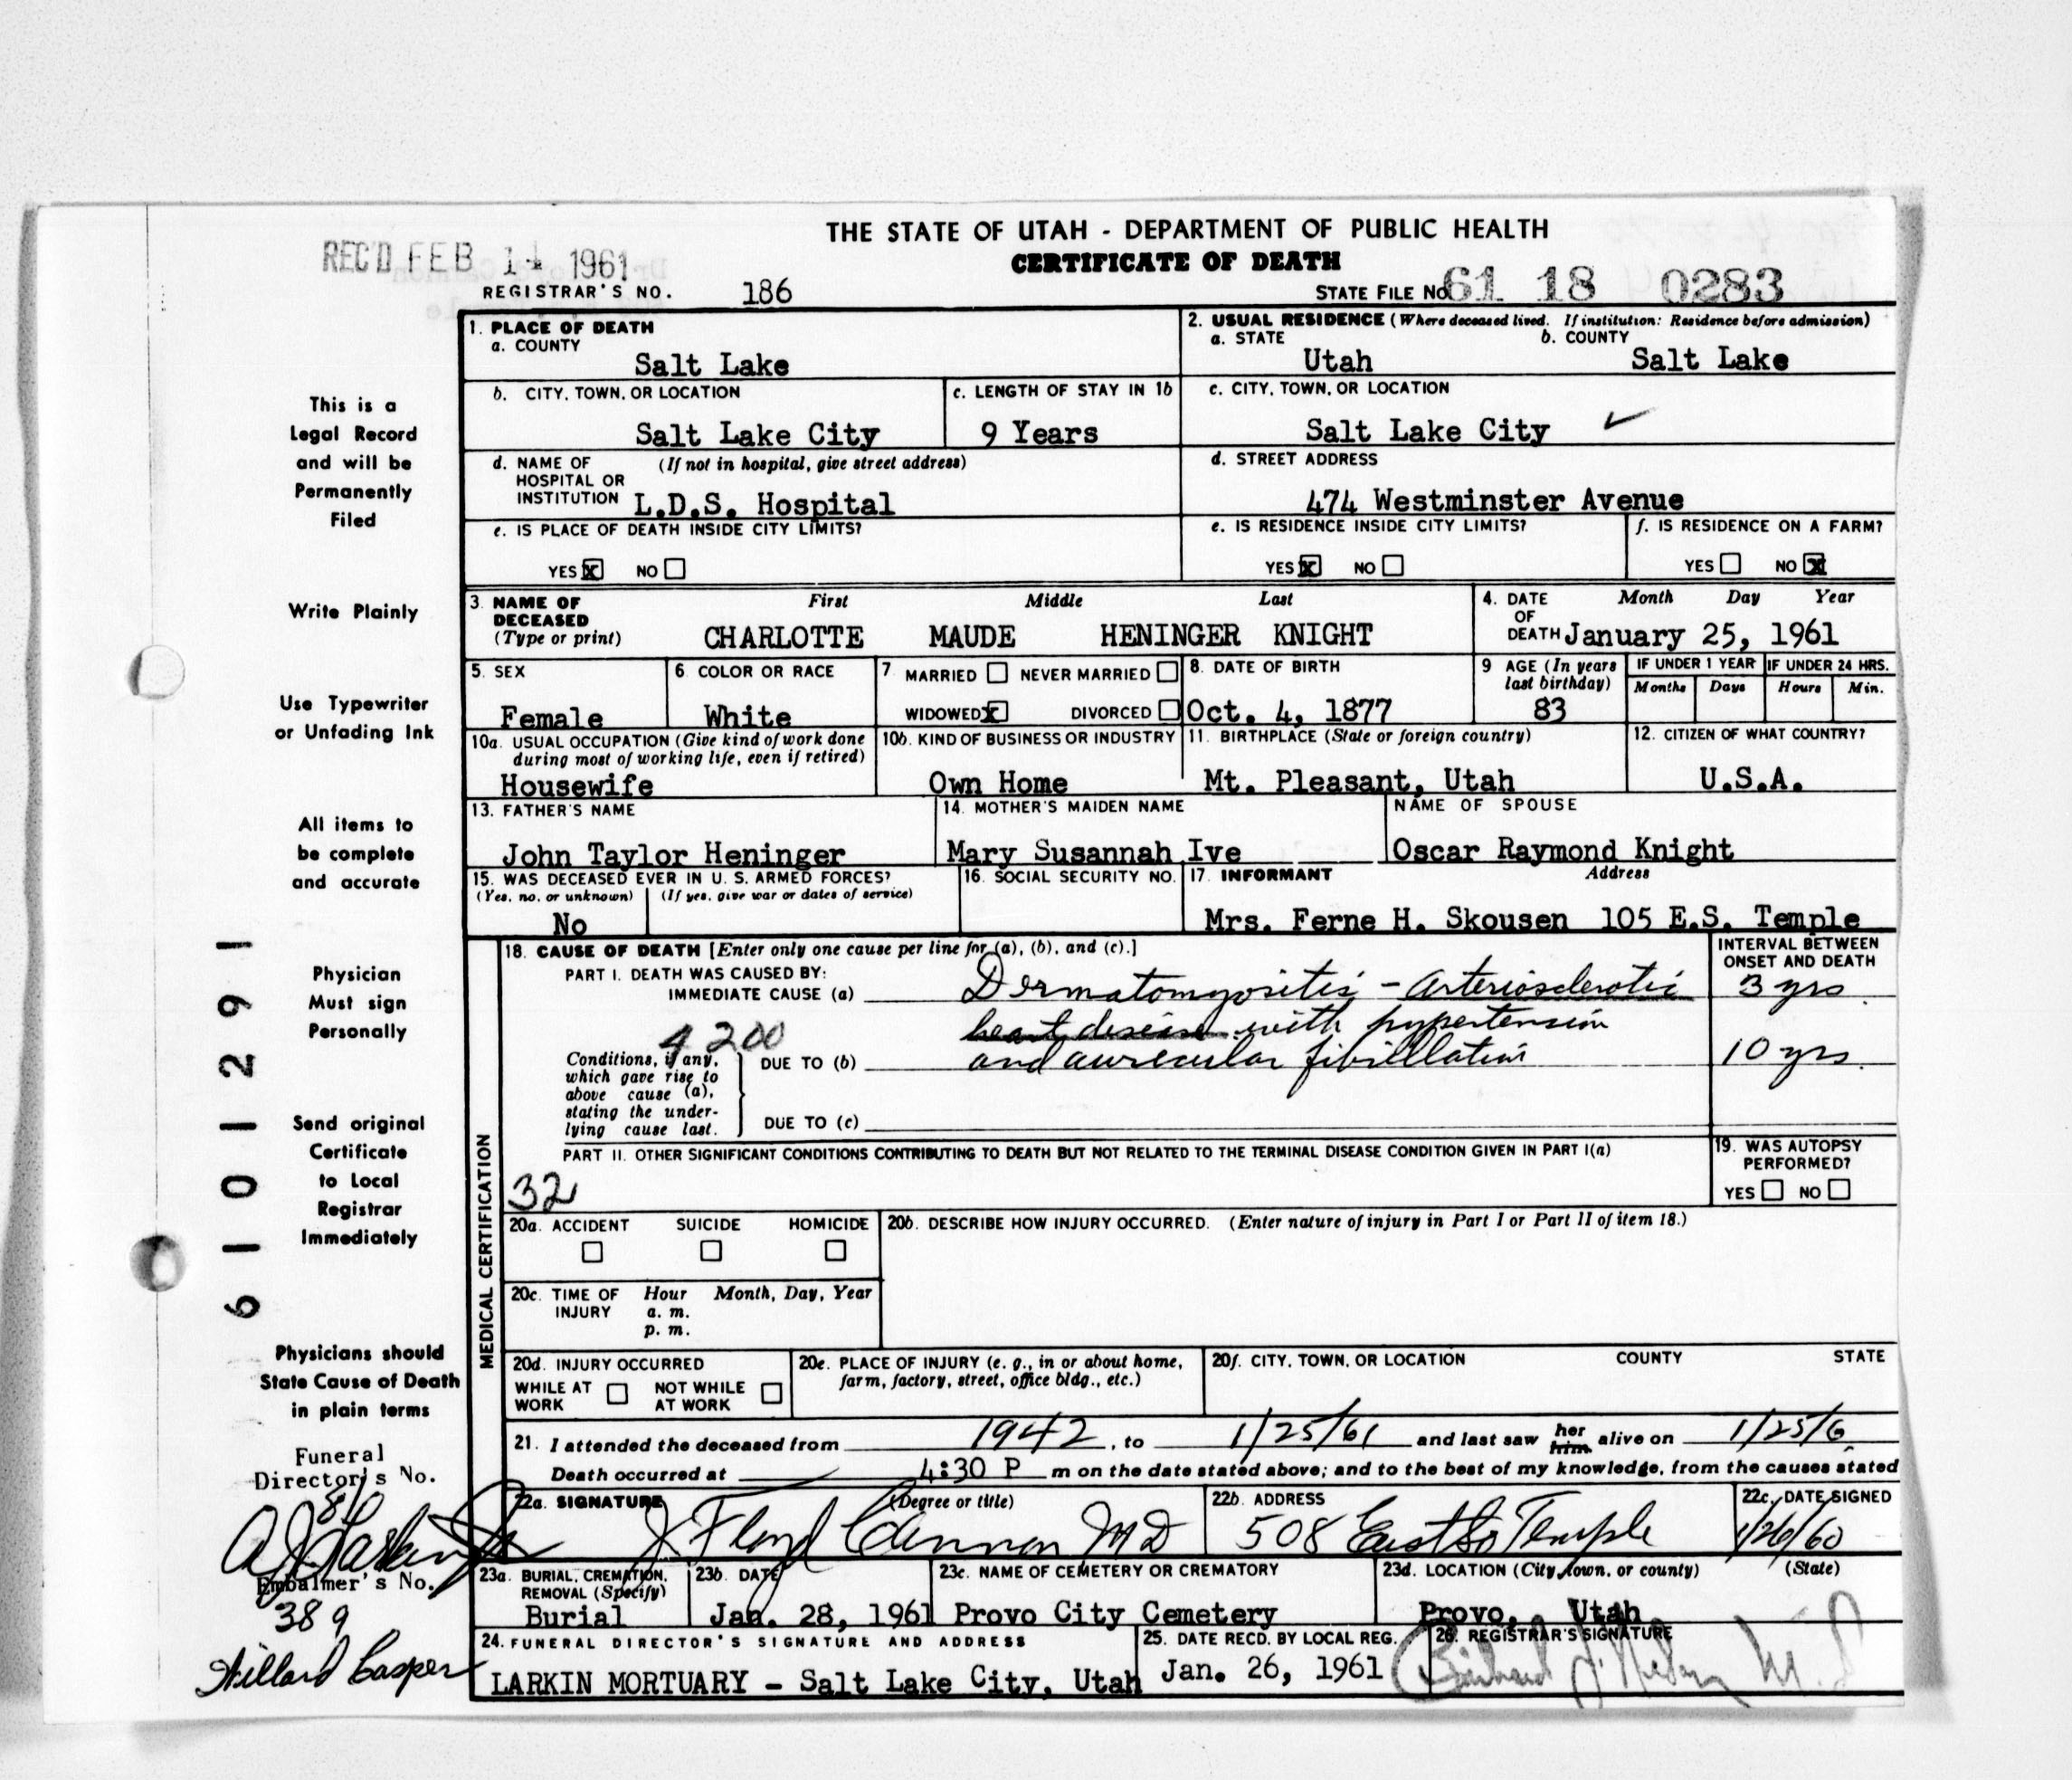 THE STATE OF UTAH - DEPARTMENT OF PUBLIC HEALTH
CERTIFICATE OF DEATH
REC'D FEB 14 1961
REGISTRAR'S NO. 186
STATE FILE NO. 61 18 0283
1. PLACE OF DEATH
a. COUNTY
Salt Lake
2. USUAL RESIDENCE (Where deceased lived. If institution: Residence before admission)
a. STATE b. COUNTY
Utah Salt Lake
b. CITY, TOWN, OR LOCATION
Salt Lake City
c. LENGTH OF STAY IN 1b
9 Years
c. CITY, TOWN, OR LOCATION
Salt Lake City ✓
d. NAME OF (If not in hospital, give street address)
HOSPITAL OR
INSTITUTION L.D.S. Hospital
d. STREET ADDRESS
474 Westminster Avenue
e. IS PLACE OF DEATH INSIDE CITY LIMITS?
YES X NO
e. IS RESIDENCE INSIDE CITY LIMITS?
YES X NO
f. IS RESIDENCE ON A FARM?
YES NO X
3. NAME OF First Middle Last
DECEASED
(Type or print) CHARLOTTE MAUDE HENINGER KNIGHT
4. DATE Month Day Year
OF
DEATH January 25, 1961
5. SEX
Female
6. COLOR OR RACE
White
7. MARRIED NEVER MARRIED
WIDOWED X DIVORCED
8. DATE OF BIRTH
Oct. 4, 1877
9 AGE (In years
last birthday)
83
IF UNDER 1 YEAR
Months Days
IF UNDER 24 HRS.
Hours Min.
10a. USUAL OCCUPATION (Give kind of work done
during most of working life, even if retired)
Housewife
10b. KIND OF BUSINESS OR INDUSTRY
Own Home
11. BIRTHPLACE (State or foreign country)
Mt. Pleasant, Utah
12. CITIZEN OF WHAT COUNTRY?
U.S.A.
13. FATHER'S NAME
John Taylor Heninger
14. MOTHER'S MAIDEN NAME
Mary Susannah Ive
NAME OF SPOUSE
Oscar Raymond Knight
15. WAS DECEASED EVER IN U. S. ARMED FORCES?
(Yes, no, or unknown) (If yes, give war or dates of service)
No
16. SOCIAL SECURITY NO.
17. INFORMANT Address
Mrs. Ferne H. Skousen 105 E.S. Temple
MEDICAL CERTIFICATION
18. CAUSE OF DEATH [Enter only one cause per line for (a), (b), and (c).]
INTERVAL BETWEEN
ONSET AND DEATH
PART I. DEATH WAS CAUSED BY:
IMMEDIATE CAUSE (a) Dermatomyositis - arteriosclerotic 3 yrs.
heart disease with hypertension
4200
Conditions, if any,
which gave rise to
above cause (a),
stating the under-
lying cause last.
DUE TO (b) and auricular fibrillation 10 yrs.
DUE TO (c)
PART II. OTHER SIGNIFICANT CONDITIONS CONTRIBUTING TO DEATH BUT NOT RELATED TO THE TERMINAL DISEASE CONDITION GIVEN IN PART I(a)
32
19. WAS AUTOPSY
PERFORMED?
YES NO
20a. ACCIDENT SUICIDE HOMICIDE
20b. DESCRIBE HOW INJURY OCCURRED. (Enter nature of injury in Part I or Part II of item 18.)
20c. TIME OF Hour Month, Day, Year
INJURY a. m.
p. m.
20d. INJURY OCCURRED
WHILE AT NOT WHILE
WORK AT WORK
20e. PLACE OF INJURY (e. g., in or about home,
farm, factory, street, office bldg., etc.)
20f. CITY, TOWN, OR LOCATION COUNTY STATE
21. I attended the deceased from 1942, to 1/25/61 and last saw her him alive on 1/25/6
Death occurred at 4:30 P m on the date stated above; and to the best of my knowledge, from the causes stated
22a. SIGNATURE (Degree or title)
J. Floyd Cannon MD
22b. ADDRESS
508 East So Temple
22c. DATE SIGNED
1/26/60
23a. BURIAL, CREMATION,
REMOVAL (Specify)
Burial
23b. DATE
Jan. 28, 1961
23c. NAME OF CEMETERY OR CREMATORY
Provo City Cemetery
23d. LOCATION (City, town, or county) (State)
Provo, Utah
24. FUNERAL DIRECTOR'S SIGNATURE AND ADDRESS
LARKIN MORTUARY - Salt Lake City, Utah
25. DATE RECD. BY LOCAL REG.
Jan. 26, 1961
26. REGISTRAR'S SIGNATURE
This is a
Legal Record
and will be
Permanently
Filed
Write Plainly
Use Typewriter
or Unfading Ink
All items to
be complete
and accurate
Physician
Must sign
Personally
Send original
Certificate
to Local
Registrar
Immediately
Physicians should
State Cause of Death
in plain terms
Funeral
Director's No.
86
Embalmer's No.
389
Willard Casper
6101291